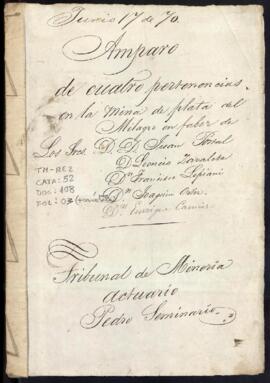 Junio 17 de 70.
Amparo
de cuatro pertenencias
en la mina de plata del
Milagro en fabor de
Los Sres D. D. Juan
D. Leoncio
Dn. Francisco Lepiani
Dn. Joaquin
Dn. Enrique
TM-RE2
CATA: 52
DOC: 108
FOL: 03
Tribunal de Mineria
Actuario
Pedro Seminario